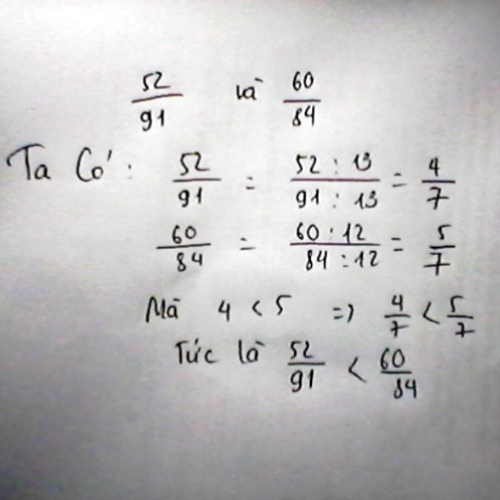 52/91 là 60/84
Ta Có: 52/91 = 52 : 13 / 91 : 13 = 4/7
60/84 = 60 : 12 / 84 : 12 = 5/7
Mà 4 < 5 => 4/7 < 5/7
Tức là 52/91 < 60/84